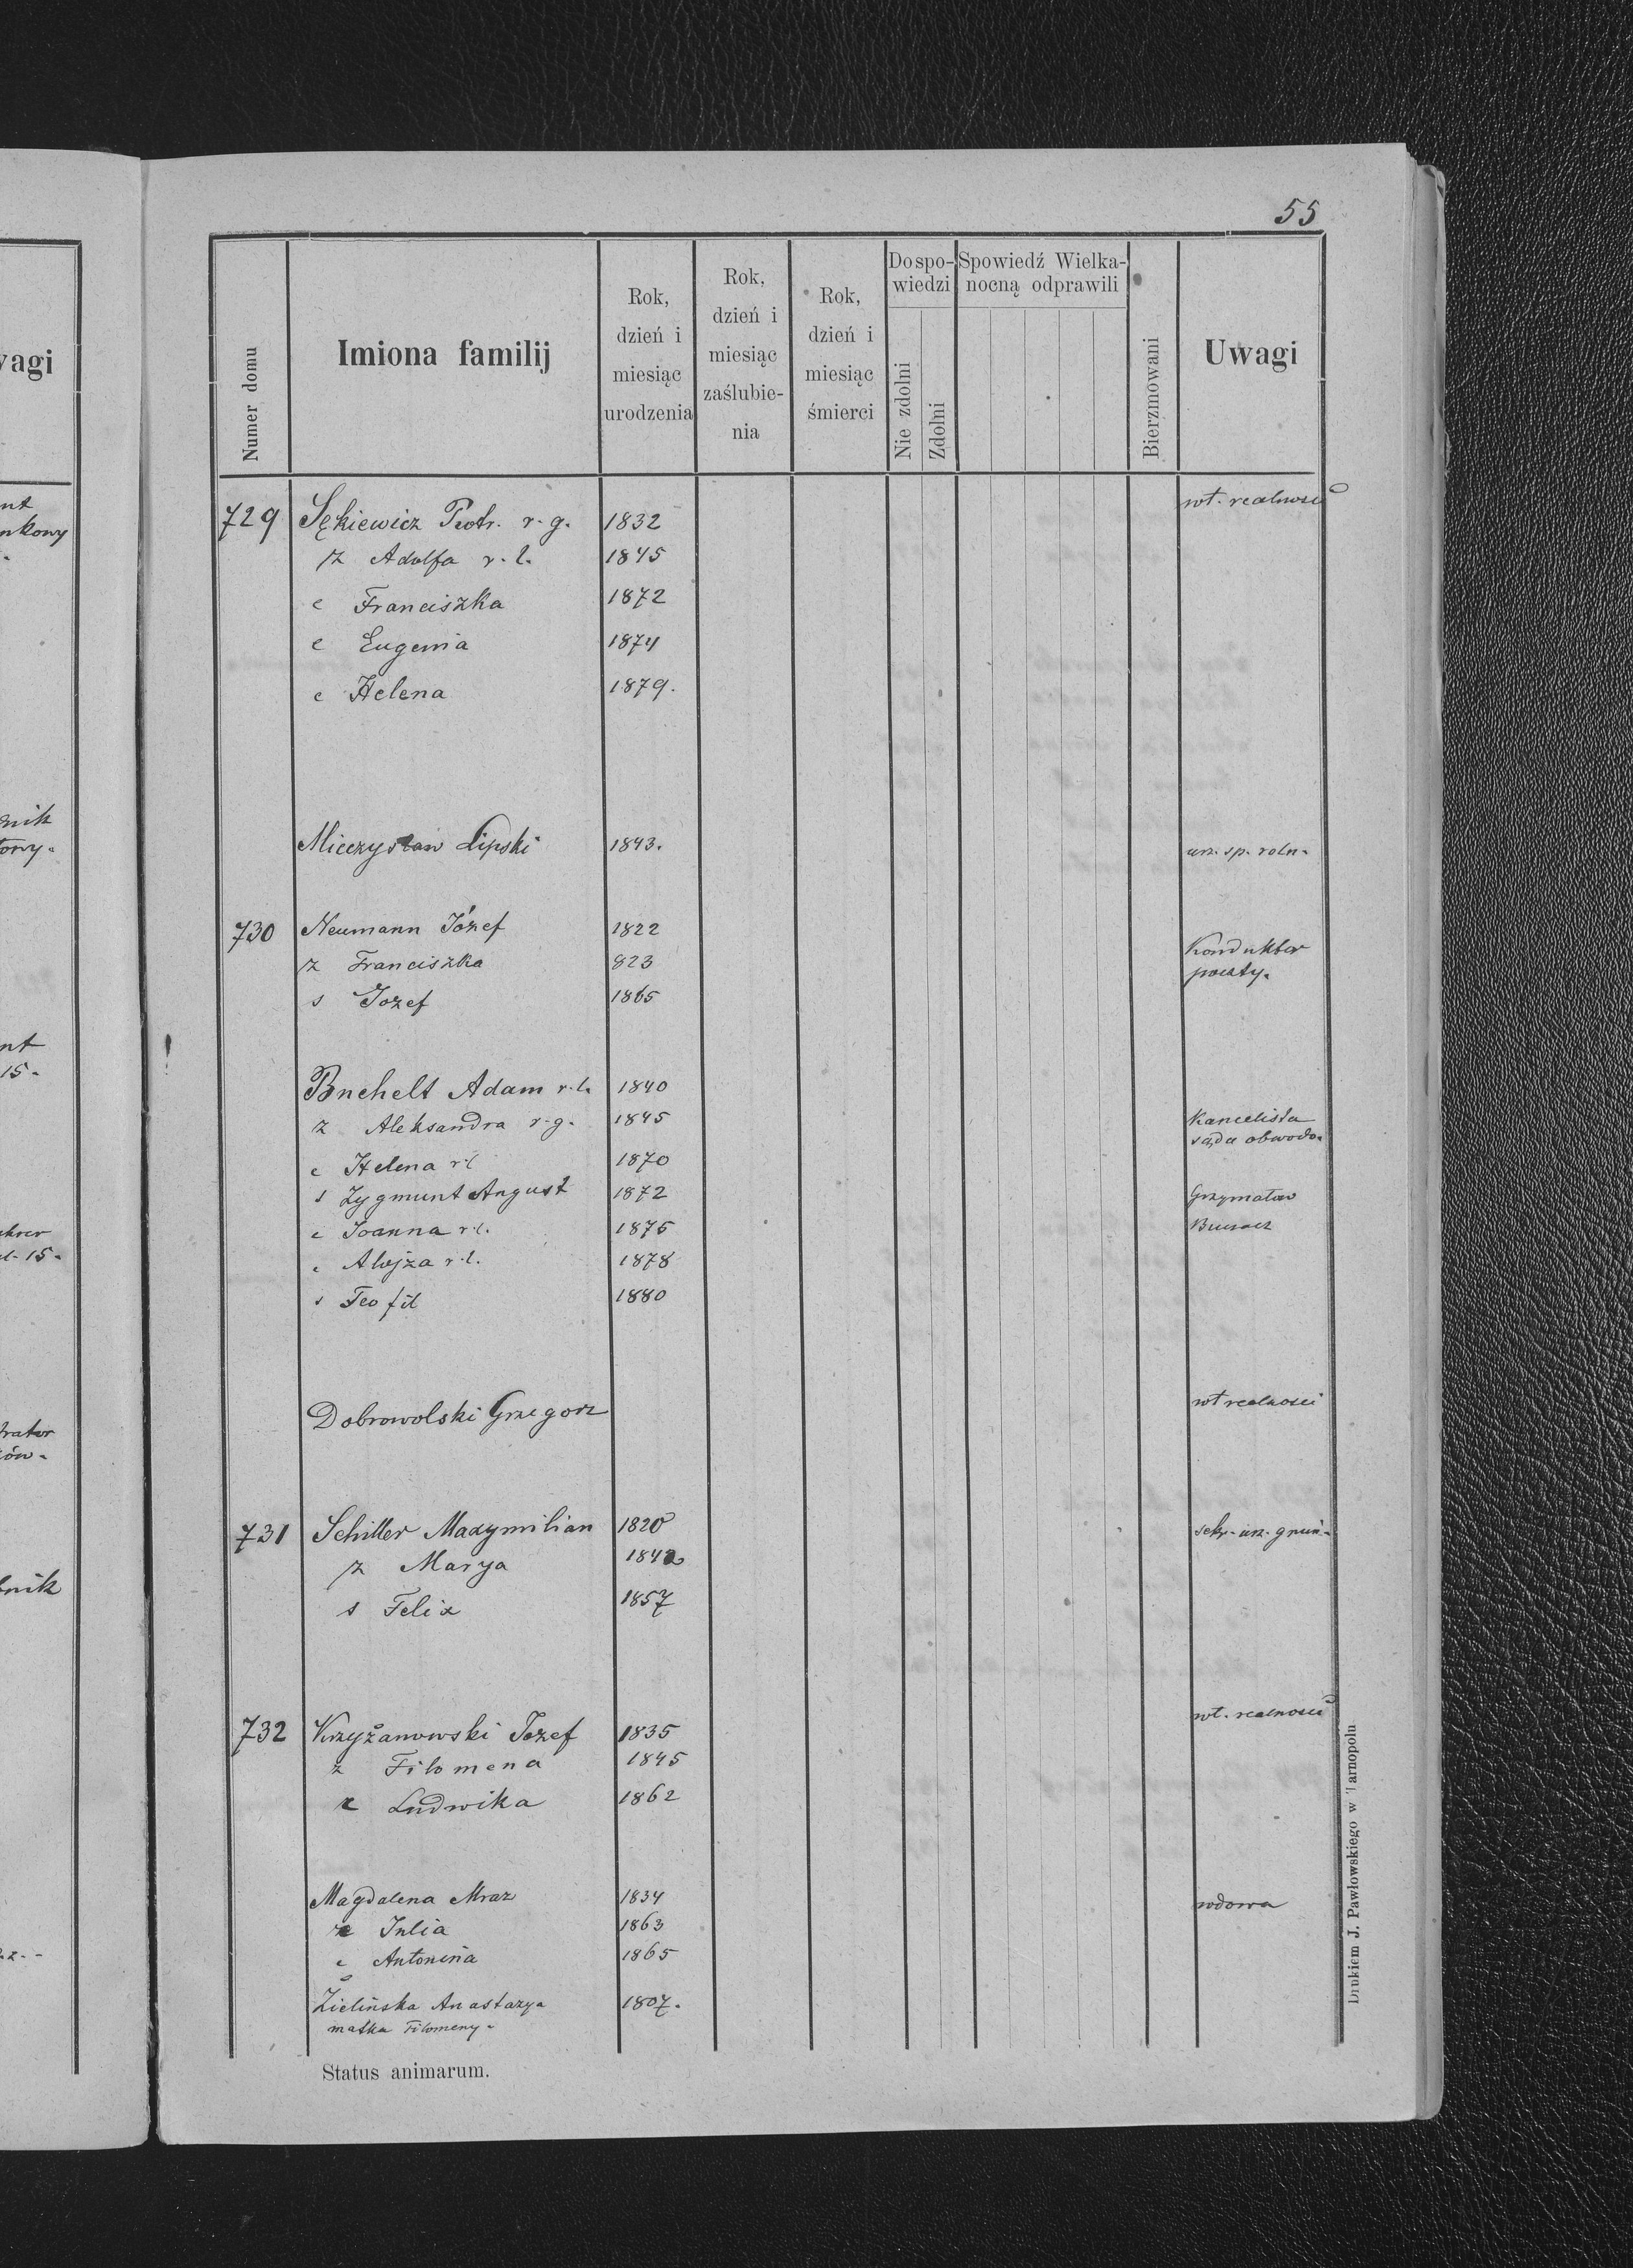 55
Numer domu
Imiona familij
Rok, dzień i miesiąc urodzenia
Rok, dzień i miesiąc zaślubienia
Rok, dzień i miesiąc śmierci
Do spowiedzi
Nie zdolni
Zdolni
Spowiedź Wielkanocną odprawili
Bierzmowani
Uwagi
729 Sękiewicz Piotr. r. g. 1832 wł. realności
ż Adolfa r. l. 1845
c Franciszka 1872
c Eugenia 1874
c Helena 1879.
Mieczysław Lipski 1843. urz. sp. roln.
730 Neumann Józef 1822 Konduktor
ż Franciszka 823 poczty.
s Jozef 1865
Buchelt Adam r. l. 1840
ż Aleksandra r. g. 1845 Kancelista
sądu obwodo.
c Helena r l 1870
s Zygmunt August 1872 Grzymałow
c Joanna r. l. 1875
c Alojza r. l. 1878
s Teofil 1880
Dobrowolski Grzegorz wł realnosci
731 Schiller Maxymilian 1820 sekr. urz. gmin.
ż Marya
s Felix 1857
732 Krzyżanowski Jozef 1835 wł. realności
ż Filomena 1845
c Ludwika 1862
Magdalena Mraz 1834 wdowa
c Julia 1863
c Antonina 1865
Zielińska Anastazya 1807.
matka Filomeny.
Status animarum.
Drukiem J. Pawłowskiego w Tarnopolu
vagi